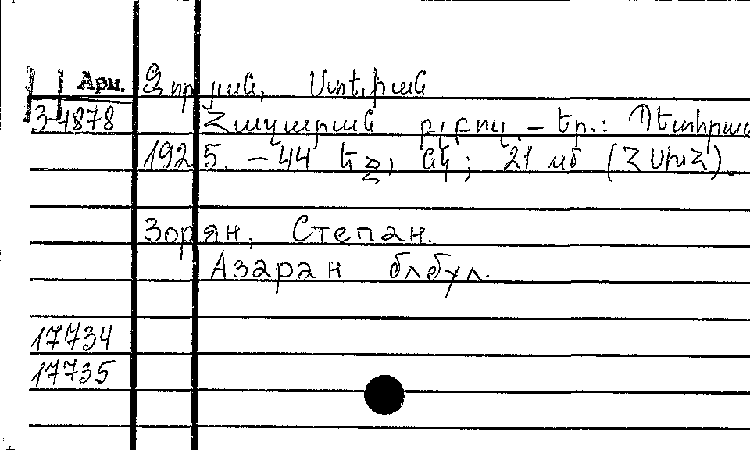 Арм. Զորյան, Ստեփան
3-4878 Հազարան բլբուլ. – Եր.: Պետհրատ
1925. – 44 եջ, նկ; 21 սմ (ՀՍԽՀ).
Зорян, Степан.
Азаран блбул.
17734
17735